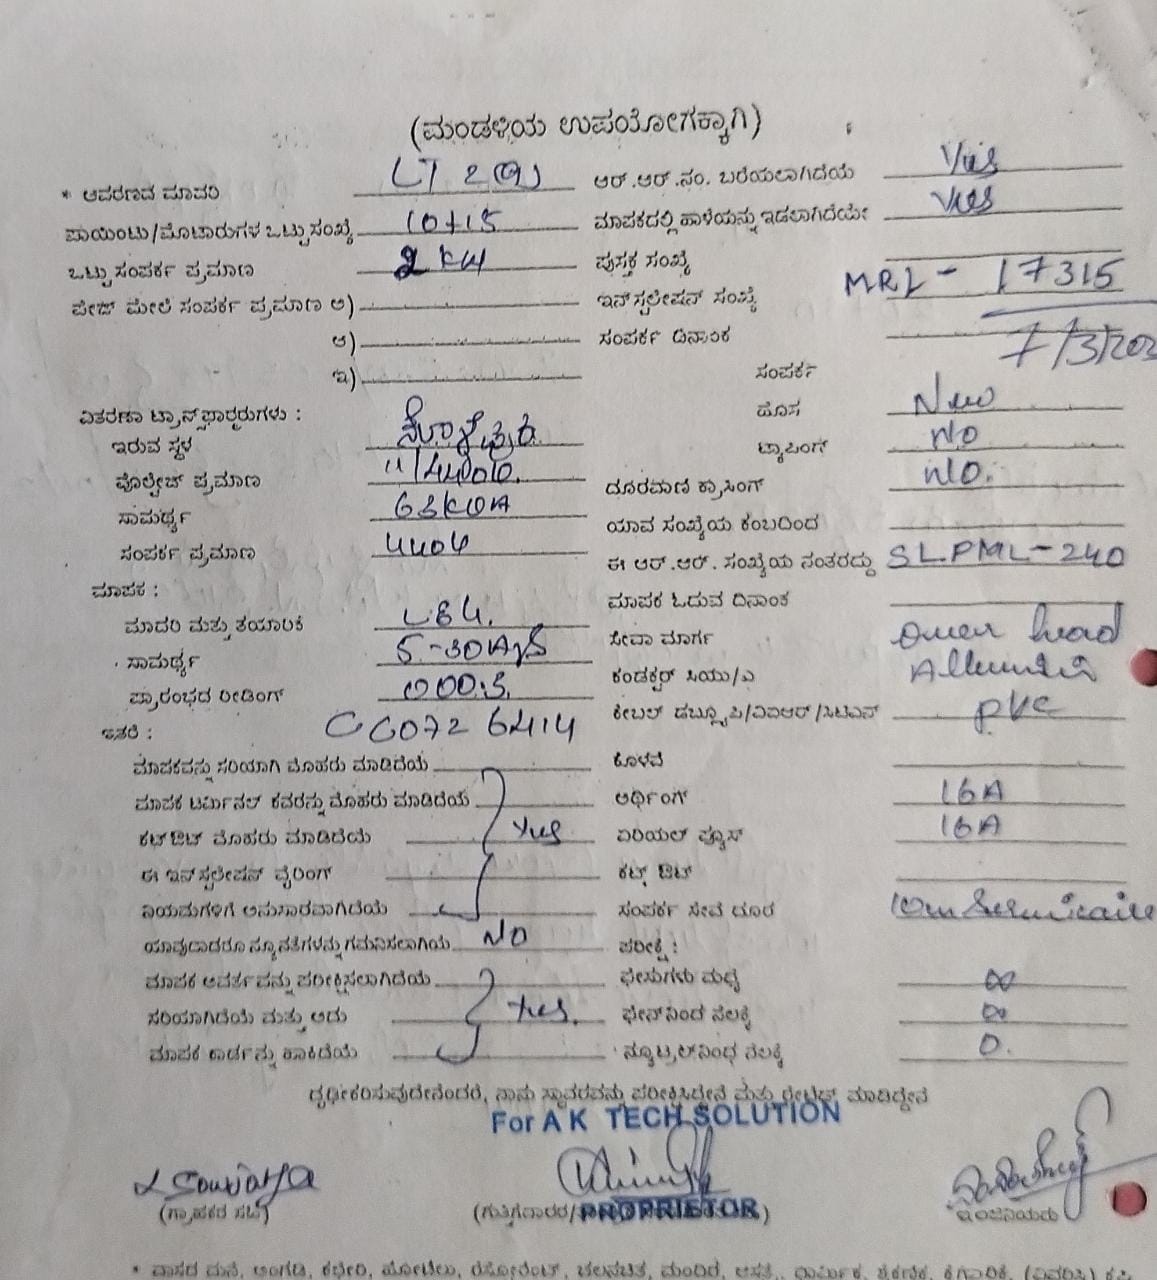 (ಮಂಡಳಿಯ ಉಪಯೋಗಕ್ಕಾಗಿ)
* ಆವರಣದ ಮಾದರಿ LT 2(a) ಆರ್.ಆರ್.ನಂ. ಬರೆಯಲಾಗಿದೆಯೆ Yes
ಪಾಯಿಂಟು/ಮೋಟಾರುಗಳ ಒಟ್ಟು ಸಂಖ್ಯೆ 10+15 ಮಾಪಕದಲ್ಲಿ ಹಾಳೆಯನ್ನು ಇಡಲಾಗಿದೆಯೇ Yes
ಒಟ್ಟು ಸಂಪರ್ಕ ಪ್ರಮಾಣ 2 KW ಪುಸ್ತಕ ಸಂಖ್ಯೆ
ಪೇಜ್ ಮೇಲೆ ಸಂಪರ್ಕ ಪ್ರಮಾಣ ಅ) ಇನ್‌ಸ್ಟಲೇಷನ್ ಸಂಖ್ಯೆ MRL - 17315
ಆ) ಸಂಪರ್ಕ ದಿನಾಂಕ 7/3/202
ಇ) ಸಂಪರ್ಕ
ವಿತರಣಾ ಟ್ರಾನ್ಸ್‌ಫಾರ್ಮರುಗಳು : ಹೊಸ New
ಇರುವ ಸ್ಥಳ ಟ್ಯಾಪಿಂಗ್ No
ವೋಲ್ಟೇಜ್ ಪ್ರಮಾಣ ದೂರವಾಣಿ ಕ್ರಾಸಿಂಗ್ No.
ಸಾಮರ್ಥ್ಯ 63KVA ಯಾವ ಸಂಖ್ಯೆಯ ಕಂಬದಿಂದ
ಸಂಪರ್ಕ ಪ್ರಮಾಣ ಈ ಆರ್.ಆರ್. ಸಂಖ್ಯೆಯ ನಂತರದ್ದು SLPML-240
ಮಾಪಕ : ಮಾಪಕ ಓದುವ ದಿನಾಂಕ
ಮಾದರಿ ಮತ್ತು ತಯಾರಿಕೆ L&G. ಸೇವಾ ಮಾರ್ಗ Over head
ಸಾಮರ್ಥ್ಯ 5-30A ಕಂಡಕ್ಟರ್ ಸಿಯು/ಎ
ಪ್ರಾರಂಭದ ರೀಡಿಂಗ್ 000.3 ಕೇಬಲ್ ಡಬ್ಲ್ಯೂಪಿ/ವಿಐಆರ್/ಸಿಟಿಎಸ್ PVC
ಇತರೆ : CC072 6414
ಮಾಪಕವನ್ನು ಸರಿಯಾಗಿ ಮೊಹರು ಮಾಡಿದೆಯೆ ಕೊಳವೆ
ಮಾಪಕ ಟರ್ಮಿನಲ್ ಕವರನ್ನು ಮೊಹರು ಮಾಡಿದೆಯೆ ಅರ್ಥಿಂಗ್ 16A
ಕಟ್‌ಔಟ್ ಮೊಹರು ಮಾಡಿದೆಯೆ Yes ಏರಿಯಲ್ ಫ್ಯೂಸ್ 16A
ಈ ಇನ್‌ಸ್ಟಲೇಷನ್ ವೈರಿಂಗ್ ಕಟ್ಟ್ ಔಟ್
ನಿಯಮಗಳಿಗೆ ಅನುಸಾರವಾಗಿದೆಯೆ ಸಂಪರ್ಕ ಸೇವೆ ದೂರ 10m
ಯಾವುದಾದರೂ ನ್ಯೂನತೆಗಳನ್ನು ಗಮನಿಸಲಾಗಿಯೆ No ಪರೀಕ್ಷೆ :
ಮಾಪಕ ಆವರ್ತವನ್ನು ಪರೀಕ್ಷಿಸಲಾಗಿದೆಯೆ ಫೇಸುಗಳು ಮಧ್ಯೆ ∞
ಸರಿಯಾಗಿದೆಯೆ ಮತ್ತು ಅದು Yes. ಫೇಸ್‌ನಿಂದ ನೆಲಕ್ಕೆ ∞
ಮಾಪಕ ಕಾರ್ಡನ್ನು ಹಾಕಿದೆಯೆ ನ್ಯೂಟ್ರಲ್‌ನಿಂಧ ನೆಲಕ್ಕೆ 0.
ದೃಢೀಕರಿಸುವುದೇನೆಂದರೆ, ನಾನು ಸ್ಥಾವರವನ್ನು ಪರೀಕ್ಷಿಸಿದ್ದೇನೆ ಮತ್ತು ರೇಟೆಡ್ ಮಾಡಿದ್ದೇನೆ
For A K TECH SOLUTION
(ಗ್ರಾಹಕರ ಸಹಿ) PROPRIETOR ಇಂಜಿನಿಯರು